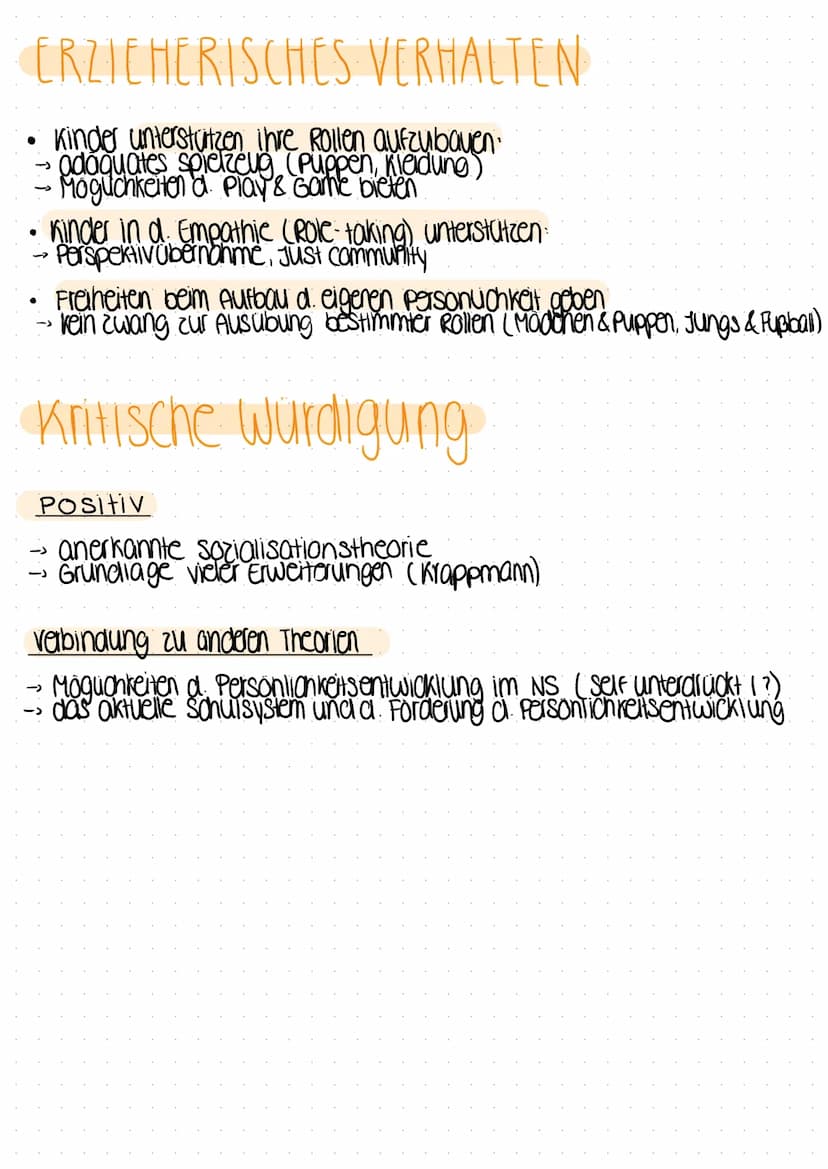 ERZIEHERISCHES VERHALTEN
• Kinder unterstützen ihre Rollen aufzubauen:
→ adäquates Spielzeug (Puppen, Kleidung)
→ Möglichkeiten d. Play & Game bieten
• Kinder in d. Empathie (Role-taking) unterstützen:
→ Perspektivübernahme, Just community
• Freiheiten beim Aufbau d. eigenen Persönlichkeit geben
→ kein Zwang zur Ausübung bestimmter Rollen (Mädchen & Puppen, Jungs & Fußball)
Kritische Würdigung
POSITIV
→ anerkannte Sozialisationstheorie
→ Grundlage vieler Erweiterungen (Krappmann)
Verbindung zu anderen Theorien
→ Möglichkeiten d. Persönlichkeitsentwicklung im NS (Self unterdrückt I?)
→ das aktuelle Schulsystem und d. Förderung d. Persönlichkeitsentwicklung